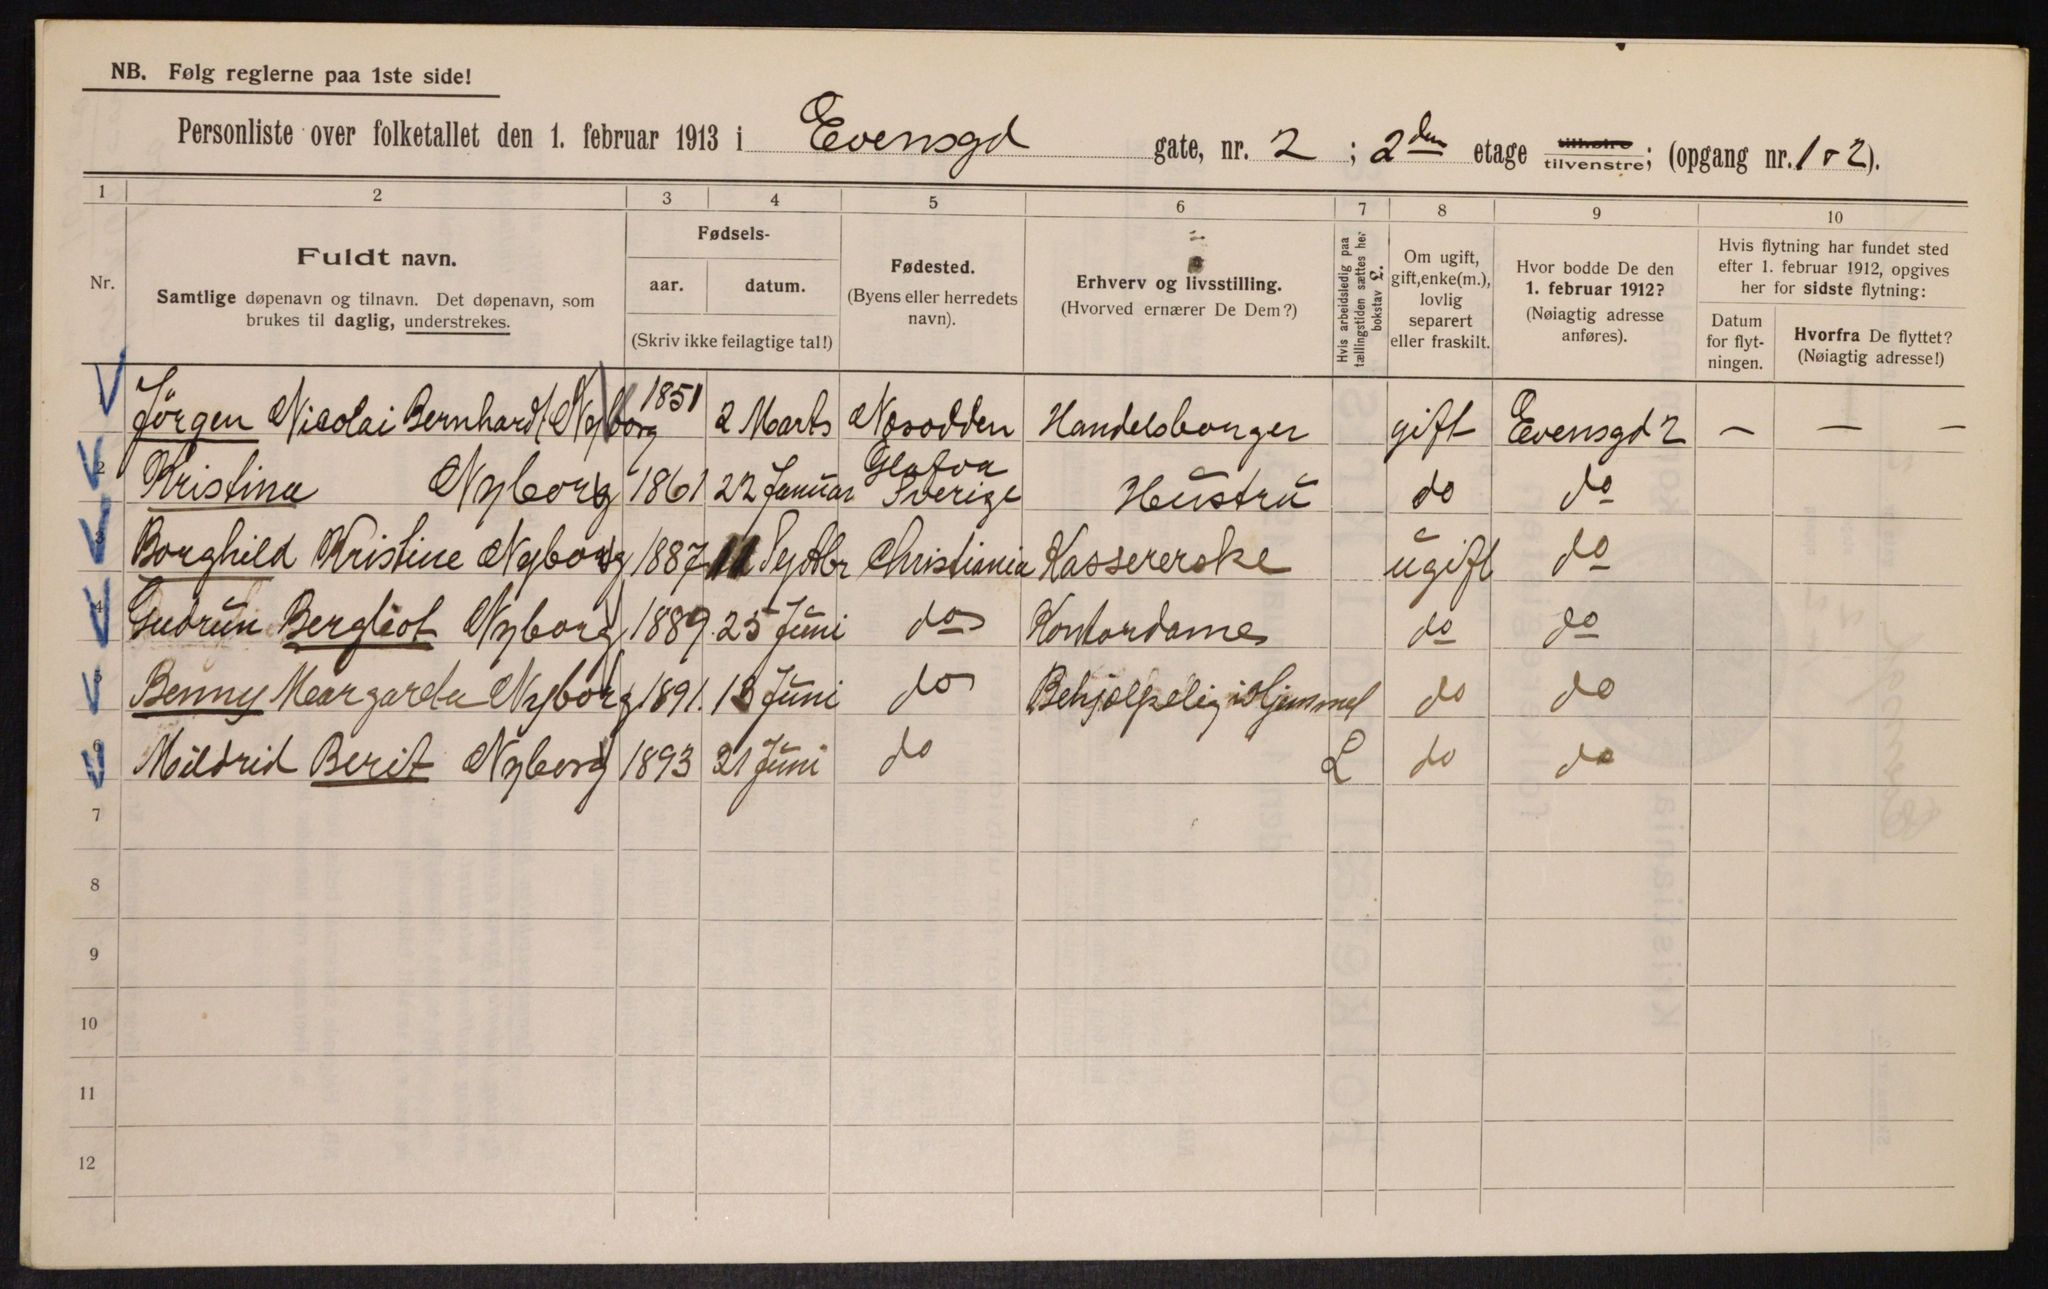 NB. Følg reglerne paa 1ste side!
Personliste over folketallet den 1. februar 1913 i Evensgd gate, nr. 2 ; 2den etage tilhøire tilvenstre; (opgang nr. 1 o 2).
1 2 3 4 5 6 7 8 9 10
Nr.
Fuldt navn.
Samtlige døpenavn og tilnavn. Det døpenavn, som
brukes til daglig, understrekes.
Fødsels-
aar. datum.
(Skriv ikke feilagtige tal!)
Fødested.
(Byens eller herredets
navn).
Erhverv og livsstilling.
(Hvorved ernærer De Dem?)
Hvis arbeidsledig paa
tællingstiden sættes her
bokstav L.
Om ugift,
gift, enke(m.),
lovlig
separert
eller fraskilt.
Hvor bodde De den
1. februar 1912?
(Nøiagtig adresse
anføres).
Hvis flytning har fundet sted
efter 1. februar 1912, opgives
her for sidste flytning:
Datum
for flyt-
ningen.
Hvorfra De flyttet?
(Nøiagtig adresse!)
1 Jörgen Nicolai Bernhardt Nyborg 1851 2 Marts Nesodden Handelsborger gift Evensgd 2 — — —
2 Kristina Nyborg 1861 22 Januar Glafva Sverige Hustru do do
3 Borghild Kristine Nyborg 1887 11 Christiania Kassererske ugift do
4 Gudrun Bergleot Nyborg 1889. 25 Juni do Kontordame do do
5 Benny Margareta Nyborg 1891. 13 Juni do Behjælpelig i Hjemmet do do
6 Mildrid Berit Nyborg 1893 21 Juni do L do do
7
8
9
10
11
12